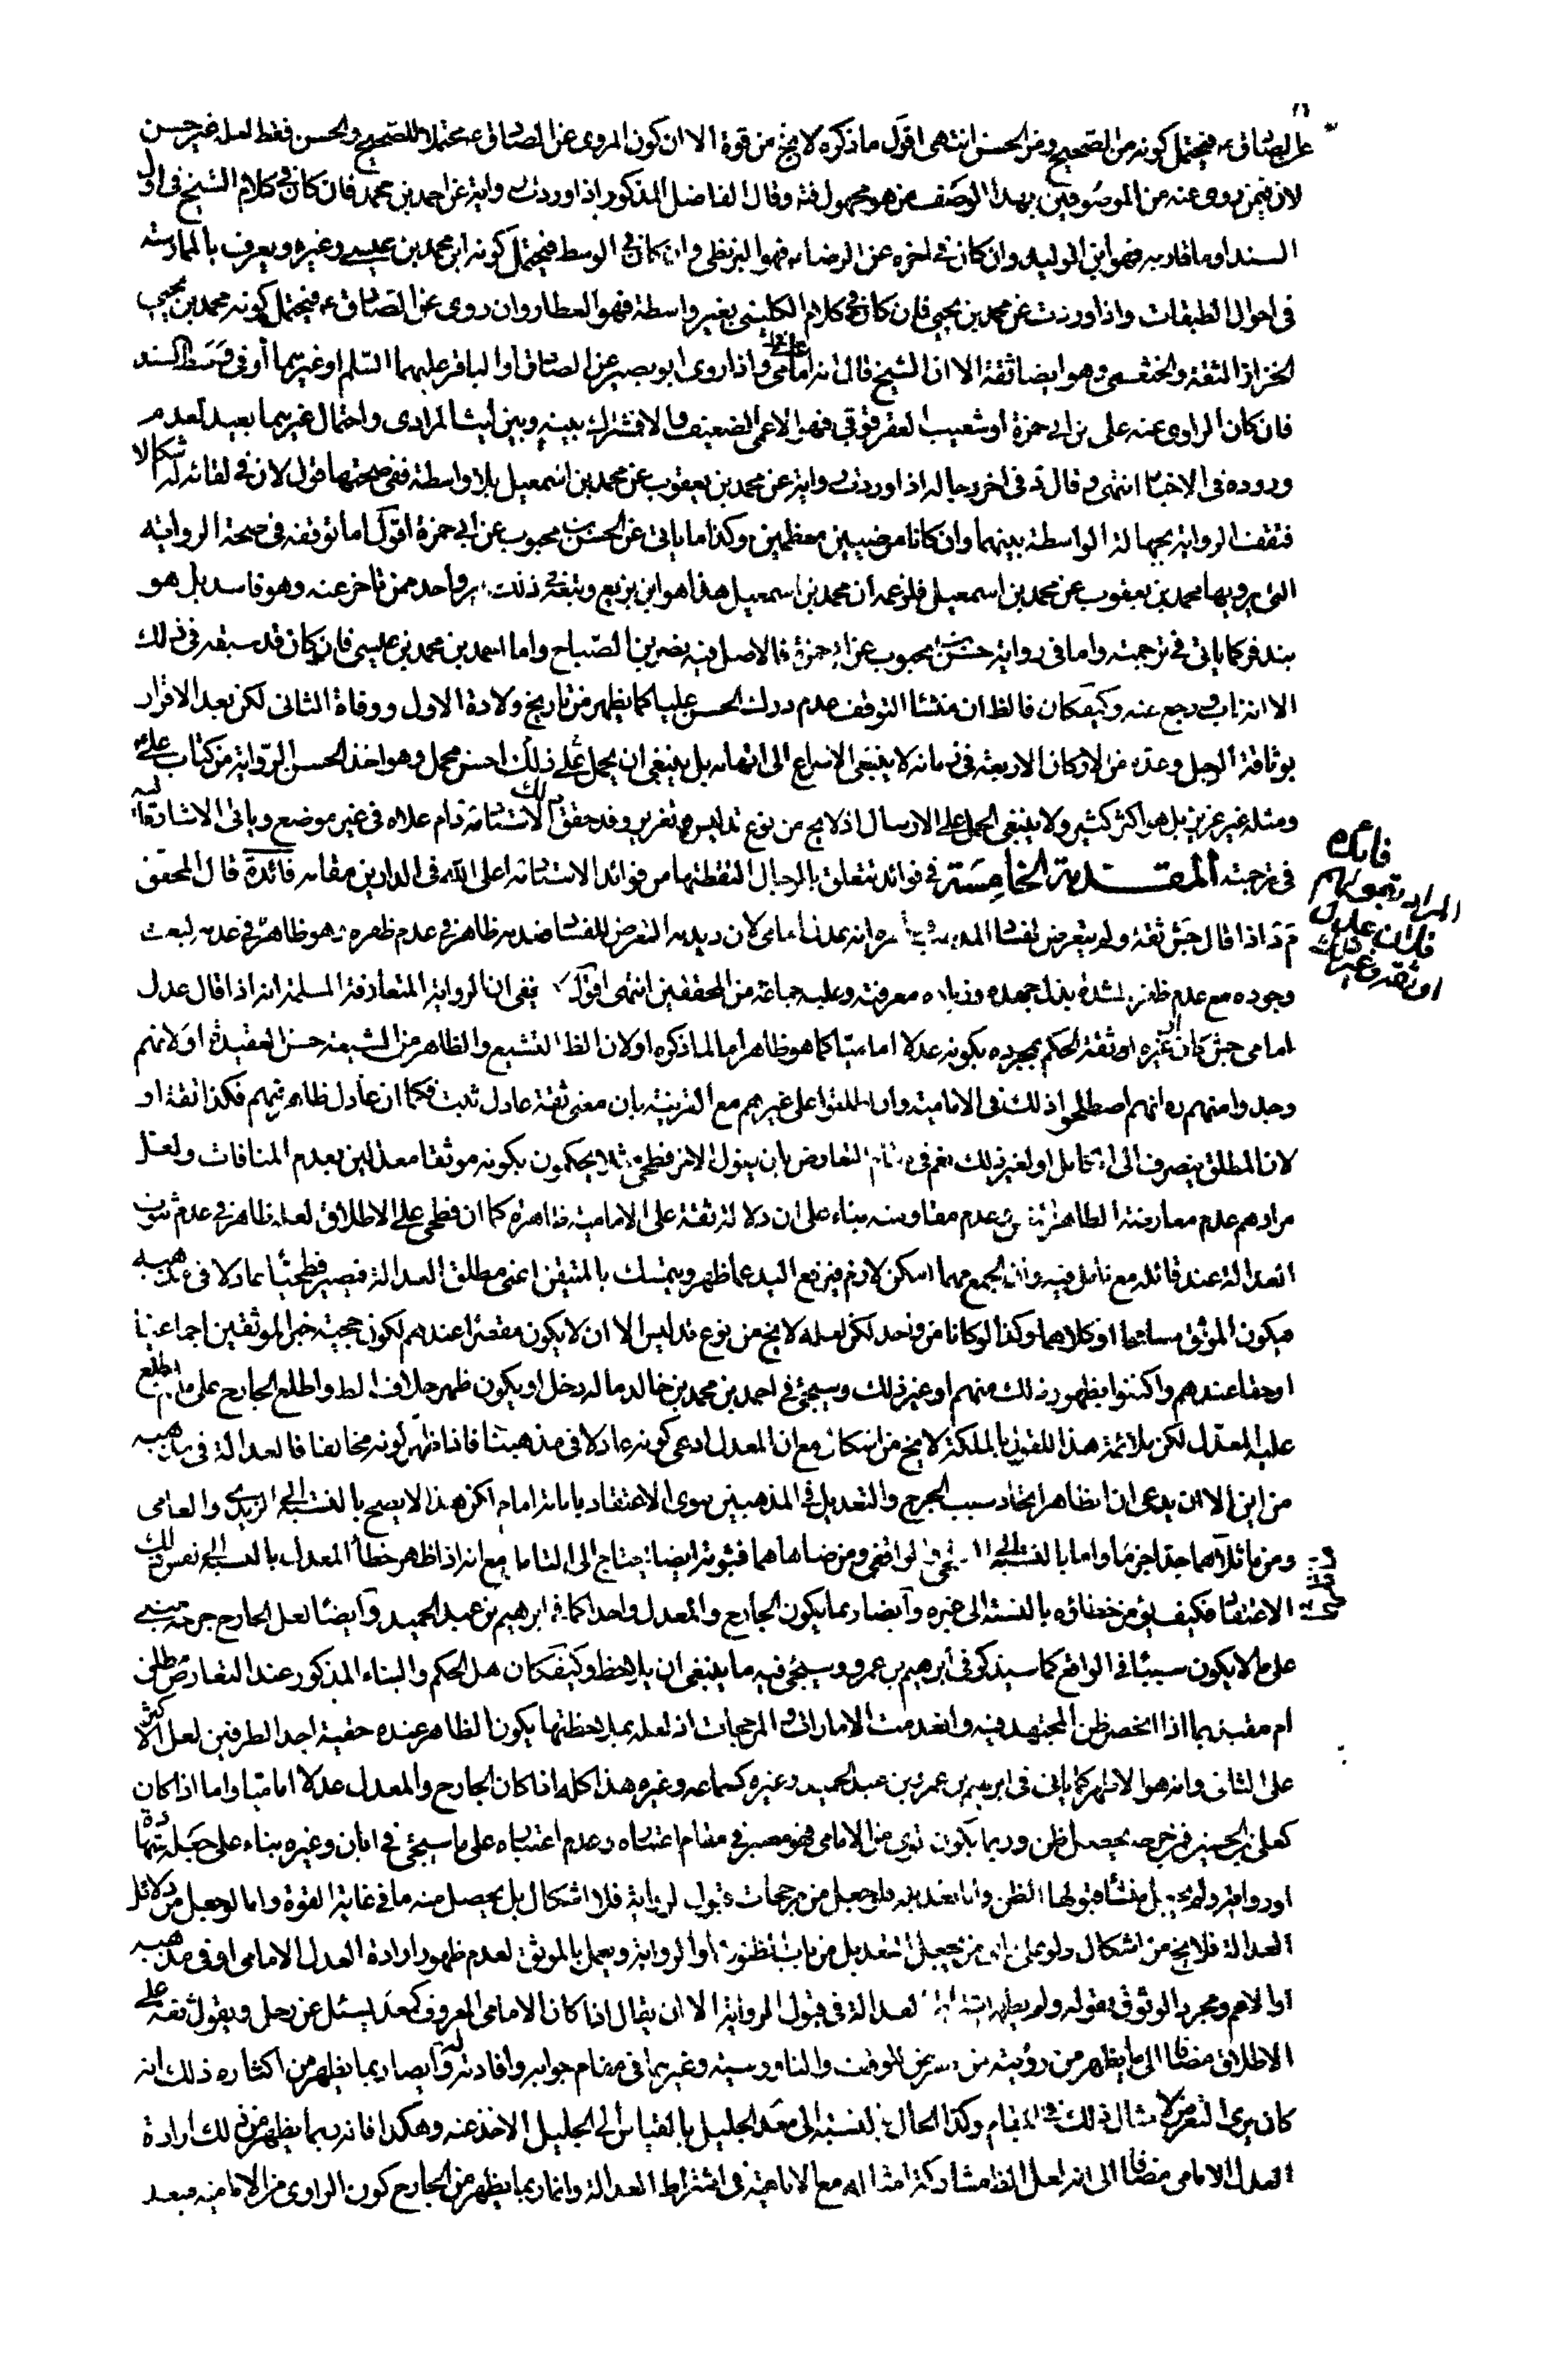 عن الصادق ع فيحتمل كونه من الصحيح ومن الحسن انتهى اقول ما ذكره لا يخ من قوة الا ان كون المروى عن الصادق ع محتملا للصحيح والحسن فقط لعله غير حسن
لان فيمن روى عنه من الموصوفين بهذا الوصف من هو مجهول فته وقال الفاضل المذكور اذا وردت رواية عن احمد بن محمد فان كان في كلام الشيخ في اول
السند او ما قاربه فهو ابن الوليد وان كان في اخره عن الرضا ع فهو البزنطى وان كان في الوسط فيحتمل كونه ابن محمد بن عيسى وغيره ويعرف بالممارسة
في احوال الطبقات واذا وردت عن محمد بن يحيى فان كان في كلام الكلينى بغير واسطة فهو العطار وان روى عن الصادق ع فيحتمل كونه محمد بن يحيى
الخزاز الثقة والخثعمى وهو ايضا ثقة الا ان الشيخ قال انه عامى واذا روى ابو بصير عن الصادق او الباقر عليهما السلم او غيرهما أو في وسط السند
فان كان الراوى عنه على بن ابى حمزة أو شعيب العقرقوقي فهو الاعمى الضعيف والا فمشترك بينه وبين ليث المرادى واحتمال غيرهما بعيد لعدم
وروده في الاخبار انتهى وقال د في اخر رجاله اذا وردت رواية عن محمد بن يعقوب عن محمد بن اسمعيل بلا واسطة ففي صحتها قول لان في لقائه له اشكالا
فتقف الرواية بجهالة الواسطة بينهما وان كانا مرضيين معظمين وكذا ما ياتي عن الحسن بن محبوب عن ابى حمزة اقول اما توقفه في صحة الرواية
التي يرويها محمد بن يعقوب عن محمد بن اسمعيل فلزعمه ان محمد بن اسمعيل هذا هو ابن بزيع وتبعه في ذلك غير واحد ممن تاخر عنه وهو فاسد بل هو
بندفر كما ياتي في ترجمته واما في رواية حسن بن محبوب عن ابى حمزة فالاصل فيه نصر بن الصباح واما احمد بن محمد بن عيسى فانه كان قد سبقه في ذلك
الا انه تاب ورجع عنه وكيف كان فالظ ان منشا التوقف عدم درك الحسن عليا كما يظهر من تاريخ ولادة الاول ووفاة الثاني لكن بعد الاقرار
بوثاقة الرجل وعده من الاركان الاربعة في زمانه لا ينبغى الاسراع الى اتهامه بل ينبغي ان يحمل على ذلك احسن محمل وهو اخذ الحسن الرواية من كتاب على
ومثله غير عزيز بل هو اكثر كثير ولا ينبغى الحمل على الارسال اذ لا يخ من نوع تدليس وتغرير وقد حقق ذلك الاستاد دام علاه في غير موضع وياتي الاشارة اليه
في ترجمته المقدمة الخامسة في فوائد تتعلق بالرجال التقطتها من فوائد الاستاد اعلى الله في الدارين مقامه فائدة قال المحقق
م د اذا قال جش ثقة ولم يتعرض لفساد المذهب فظاهره انه عدل امامى لان ديدنه التعرض للفساد فعدمه ظاهر في عدم ظفره وهو ظاهر في عدمه لبعد
وجوده مع عدم ظفره لشدة بذل جهده وزيادة معرفته وعليه جماعة من المحققين انتهى اقول لا يخفى ان الرواية المتعارفة المسلمة انه اذا قال عدل
امامى جش كان او غيره او ثقة الحكم بمجرده بكونه عدلا اماميا كما هو ظاهر اما لما ذكره او لان الظ التشيع والظاهر من الشيعة حسن العقيدة او لانهم
وجدوا منهم ره انهم اصطلحوا ذلك في الامامية وان اطلقوا على غيرهم مع القرينة بان معنى ثقة عادل ثبت فكما ان عادل ظاهر فيهم فكذا ثقة او
لان المطلق ينصرف الى الكامل او لغير ذلك نعم في مقام التعارض بان يقول الاخر فطحى مثلا يحكمون بكونه موثقا معللين بعدم المنافات ولعل
مرادهم عدم معارضة الظاهر النص وعدم مقاومته بناء على ان دلالة ثقة على الامامية ظاهرة كما ان فطحى على الاطلاق لعله ظاهر في عدم ثبوت
العدالة عند قائله مع تامل فيه وان الجمع مهما امكن لازم فيرفع اليد عما ظهر ويتمسك بالمتيقن اعنى مطلق العدالة فيصير فطحيا عادلا في مذهبه
فيكون الموثق مسامحا او كلاهما وكذا لو كانا من واحد لكن لعله لا يخ من نوع تدليس الا ان لا يكون مقصرا عندهم لكون حجية خبر الموثقين اجماعيا
او حقا عندهم واكتفوا بظهور ذلك منهم او غير ذلك وسيجئ في احمد بن محمد بن خالد ما له دخل او يكون ظهر خلاف الظ واطلع الجارح على ما لم يطلع
عليه المعدل لكن ملائمة هذا للقول بالملكة لا يخ من اشكال مع ان المعدل ادعى كونه عادلا في مذهبنا فاذا ظهر كونه مخالفا فالعدالة في مذهبه
من اين الا ان يدعى ان الظاهر اتحاد سبب الجرح والتعديل في المذهبين سوى الاعتقاد بامامة امام لكن هذا لا يصح بالنسبة الى الزيدى والعامى
ومن ماثلهما جدا جزما واما بالنسبة الى الفطحى والواقفى ومن ضاهاهما فثبوته ايضا يحتاج الى التامل مع انه اذا ظهر خطأ المعدل بالنسبة الى نفس ذلك
الاعتقاد فكيف يؤمن خطاؤه بالنسبة الى غيره وأيضا ربما يكون الجارح والمعدل واحدا كما في ابرهيم بن عبد الحميد وأيضا لعل الجارح جرحه مبنى
على ما لا يكون سببا في الواقع كما سيذكر في أبرهيم بن عمرو وسيجئ فيه ما ينبغى ان يلاحظ وكيف كان هل الحكم والبناء المذكور عند التعارض مطلق
ام مقيد بما اذا انحصر ظن المجتهد فيه وانعدمت الامارات والمرجحات اذ لعله بملاحظتها يكون الظاهر عنده حقية احد الطرفين لعل الاكثر
على الثاني وانه هو الاظهر كما ياتي في ابرهيم بن عمر وبن عبد الحميد وغيره كسماعه وغيره هذا كله اذا كان الجارح والمعدل عدلا اماميا واما اذا كان
كعلى بن الحسن فمن جرحه يحصل ظن وربما يكون اقوى من الامامى فهو معتبر في مقام اعتباره وعدم اعتباره على ما سيجئ في ابان وغيره بناء على جعله شهادة
او رواية ولم يجعل منشأ قبولها الظن واما تعديله فلو جعل من مرجحات قبول الرواية فلا اشكال بل يحصل منه ما في غاية القوة واما لو جعل من دلائل
العدالة فلا يخ من اشكال ولو على راى من يجعل التعديل من باب الظنون أو الرواية ويعمل بالموثق لعدم ظهور ارادة العدل الامامى او في مذهبه
أو الاعم ومجرد الوثوق بقوله ولم يظهر اشتراط العدالة في قبول الرواية الا ان يقال اذا كان الامامى المعروف كعد يسئل عن رجل ويقول ثقة على
الاطلاق مضافا الى ما يظهر من رؤيته من تعرض الوقف والناووسية وغيرهما في مقام جوابه وافادته له وأيضا ربما يظهر من اكثاره ذلك انه
كان يرى التعرض لامثال ذلك في المقام وكذا الحال بالنسبة الى معد الجليل بالقياس الى الجليل الاخذ عنه وهكذا فانه ربما يظهر من ذلك ارادة
العدل الامامى مضافا الى انه لعل الظ مشاركة امثاله مع الامامية في اشتراط العدالة وانه ربما يظهر من الجارح كون الراوى من الامامية فبعد
فان
المراد بقولهم
فلان عدل
او ثقة وغير ذلك